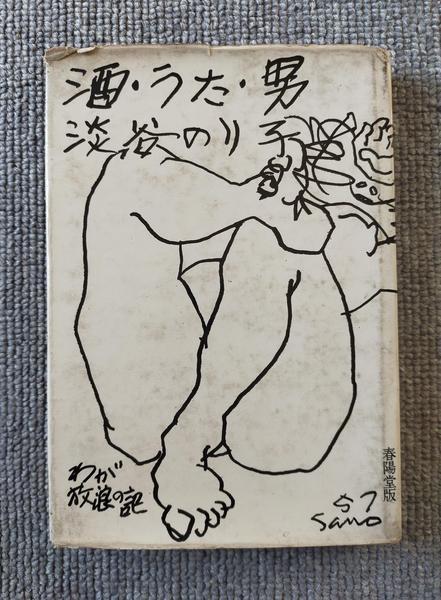 酒・うた・男
淡谷のり子
わが
放浪の記
春陽堂版
57
Sano